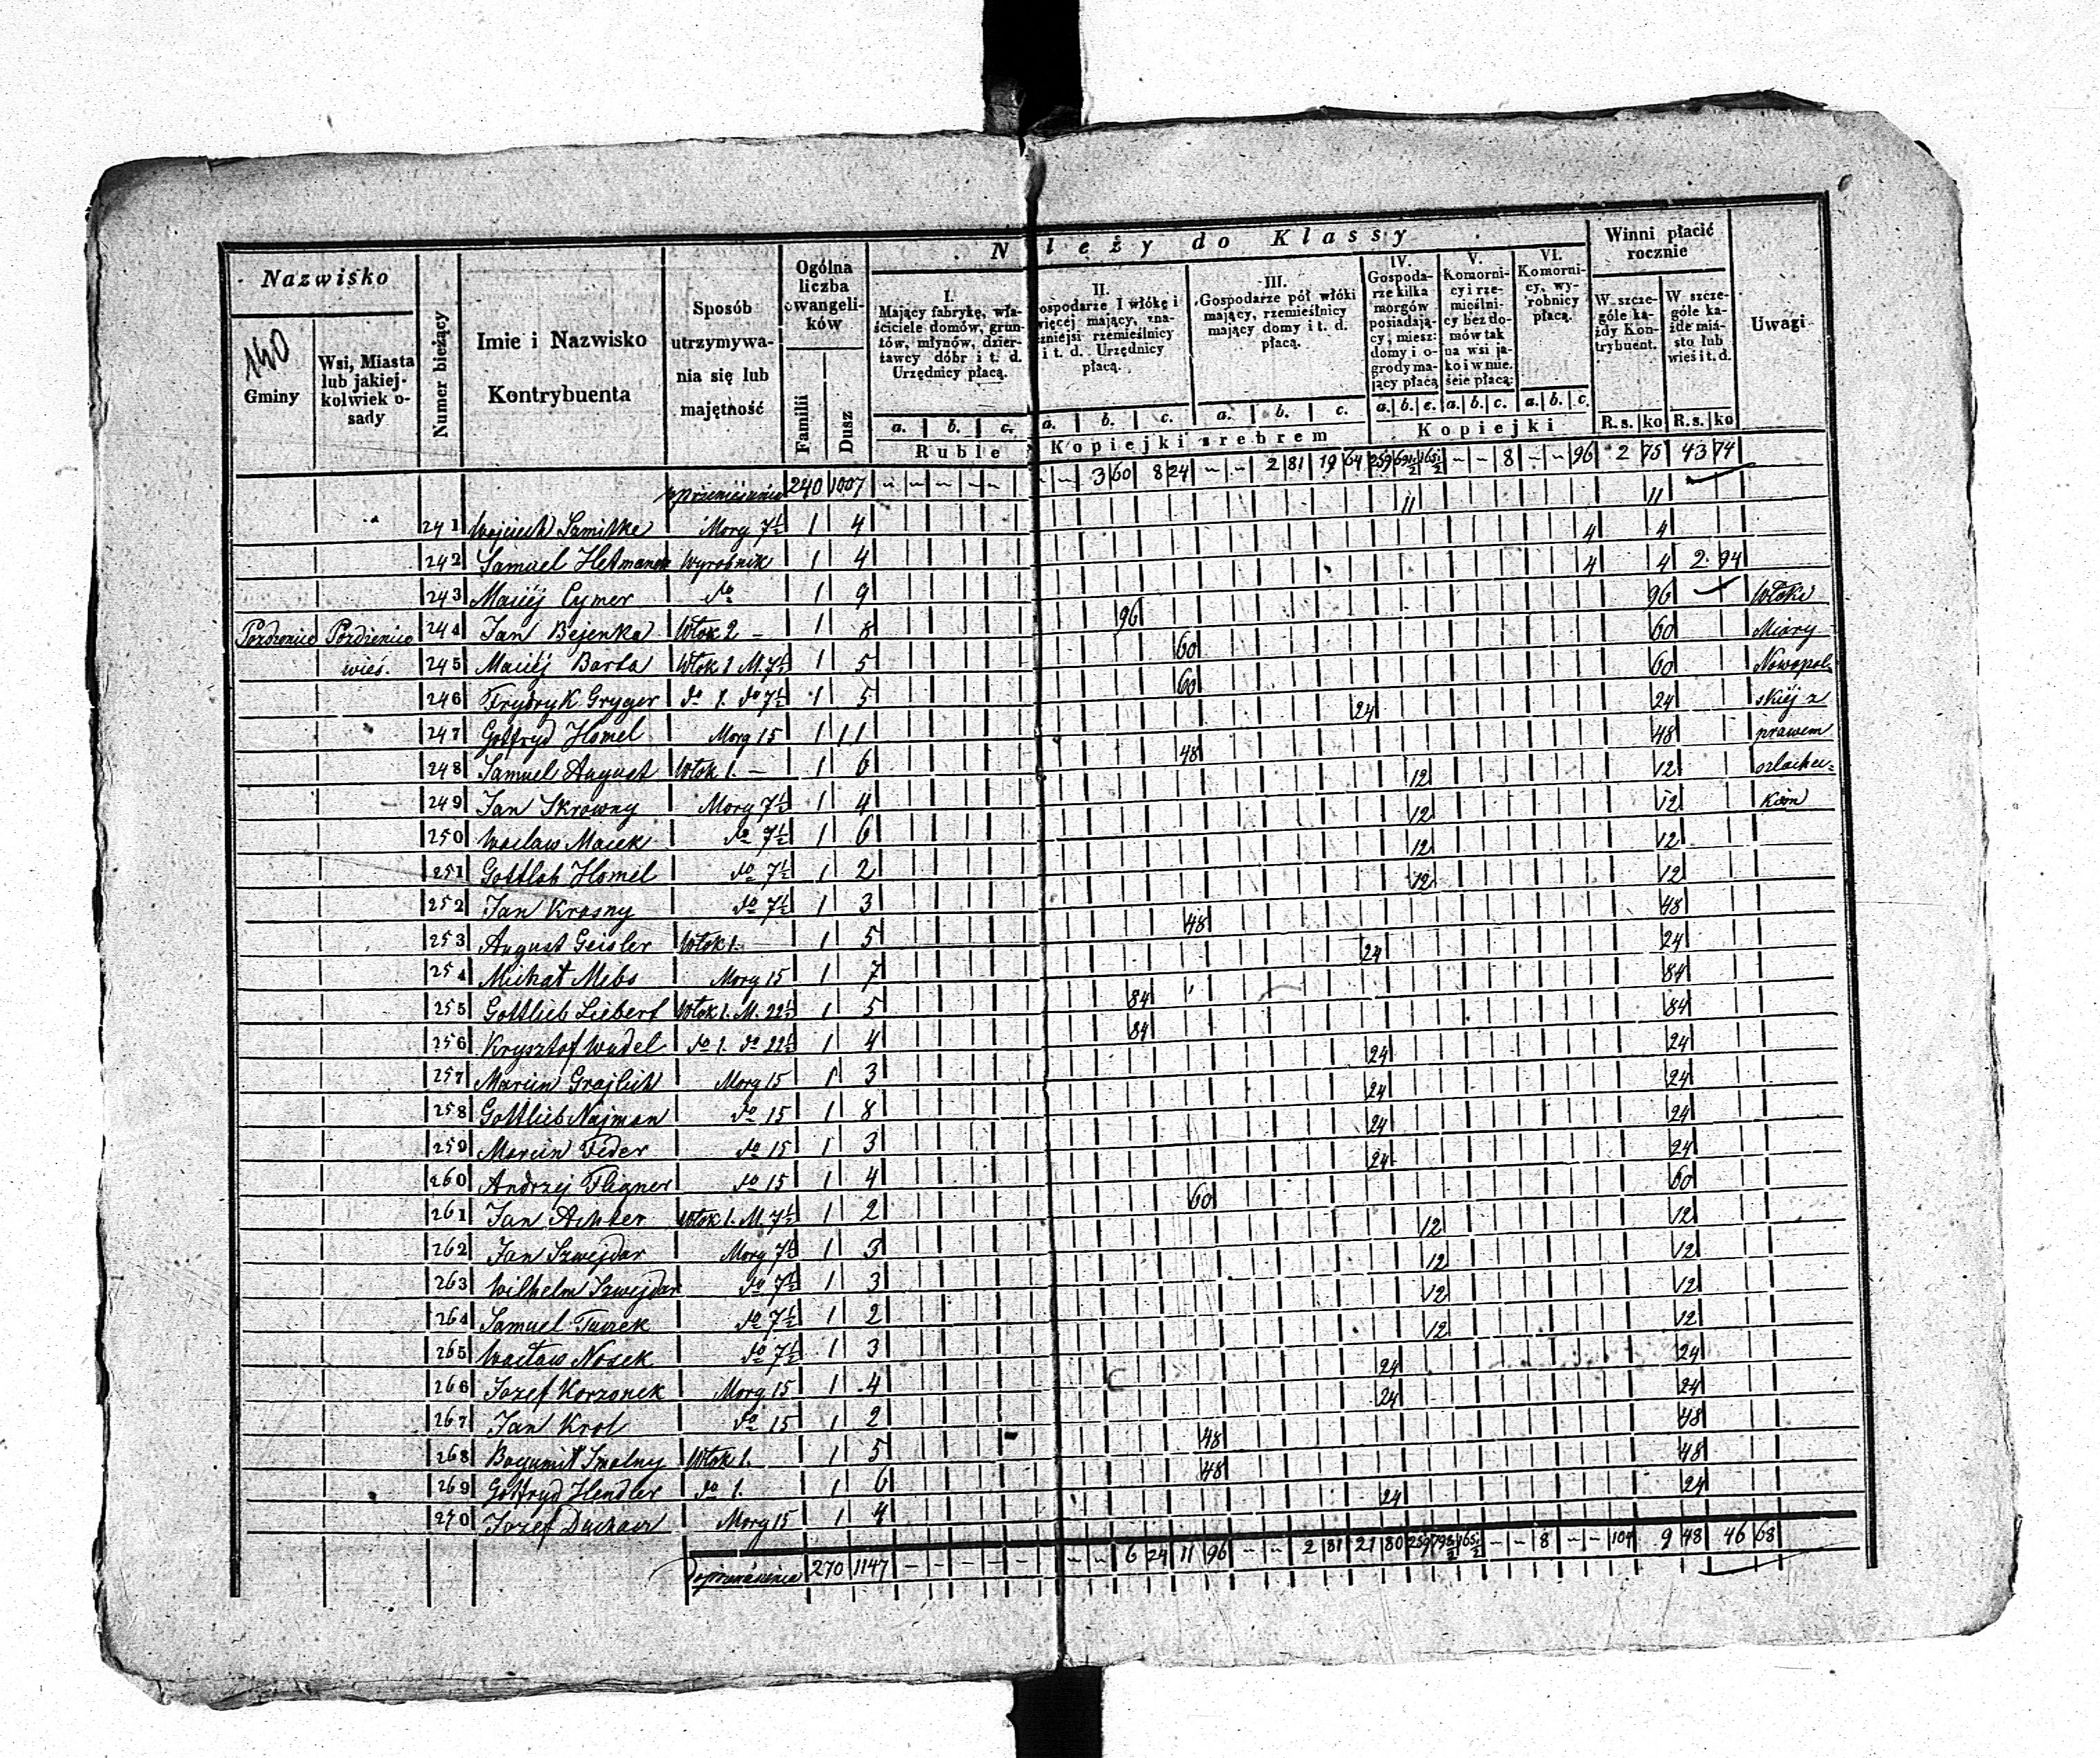 Nazwisko
140
Gminy
Wsi, Miasta lub jakiej-kolwiek o-sady
Numer bieżący
Imie i Nazwisko Kontrybuenta
Sposób utrzymywa-nia się lub majętność
Ogólna liczba ewangeli-ków
Familii
Dusz
N leży do Klassy
I. Mający fabrykę, wła-ściciele domów, grun-tów, młynów, dzier-tawcy dóbr i t. d. Urzędnicy płacą.
II. ospodarze I włókę i więcej mający, zna-czniejsi rzemieślnicy i t. d. Urzędnicy płacą.
III. Gospodarze pół włóki mający, rzemieślnicy mający domy i t. d. płacą.
IV. Gospoda-rze kilka morgów posiadają-cy, miesz: domy i o-grody ma-jący płacą
V. Komorni-cy i rze-mieślni-cy bez do-mów tak na wsi ja-ko i w mie-ście płacą:
VI. Komorni-cy, wy-robnicy płacą.
Winni płacić rocznie
W szcze-góle ka-żdy Kon-trybuent.
W szcze-góle ka-żde mia-sto lub wieś i t. d.
Uwagi
a. b. c. a. b. c. a. b. c. a. b. c. a. b. c. a. b. c. R.s. ko R.s. ko
Ruble Kopiejki srebrem Kopiejki
z przeniesienia 240 1007 – – – – – – – 3 60 8 24 – – 2 81 19 64 259 691½ 165½ – – 8 – – 96 2 75 43 74
241 Wojciech Szmitke Morg 7½ 1 4 11 11
242 Samuel Hetmanek Wyrobnik 1 4 4 4
243 Maciéj Cymer do 1 9 4 4 2 94
Pozdzenice Pozdzenice 244 Jan Bejenka Włok 2 – 1 8 96 96 Włoki
wieś. 245 Maciéj Barta Włok 1 M. 7½ 1 5 60 60 Miary
246 Frydryk Gryger do 1. do 7½ 1 5 60 60 Nowopol-
247 Gotfryd Homel Morg 15 1 11 24 24 skiéj z
248 Samuel August Włok 1. – 1 6 48 48 prawem
249 Jan Skrowny Morg 7½ 1 4 12 12 szlachec-
250 Wacław Macek do 7½ 1 6 12 12 kiem
251 Gottlob Homel do 7½ 1 2 12 12
252 Jan Krasny do 7½ 1 3 12 12
253 August Geisler Włok 1. 1 5 48 48
254 Michał Mibs Morg 15 1 7 24 24
255 Gottlieb Liebert Włok 1. M. 22½ 1 5 84 84
256 Krysztof Wudel do 1. do 22½ 1 4 84 84
257 Marcin Grajlich Morg 15 1 3 24 24
258 Gottlieb Najman do 15 1 8 24 24
259 Marcin Feder do 15 1 3 24 24
260 Andrzej Fligner do 15 1 4 24 24
261 Jan Achter Włok 1. M. 7½ 1 2 60 60
262 Jan Szwejdar Morg 7½ 1 3 12 12
263 Wilhelm Szwejdar do 7½ 1 3 12 12
264 Samuel Turek do 7½ 1 2 12 12
265 Wacław Nosek do 7½ 1 3 12 12
266 Jozef Korzonek Morg 15 1 4 24 24
267 Jan Krol do 15 1 2 24 24
268 Bogumił Smolny Włok 1. 1 5 48 48
269 Gotfryd Hendler do 1. 1 6 48 48
270 Jozef Duchacz Morg 15 1 4 24 24
Do przeniesienia 270 1147 – – – – – – – 6 24 11 96 – – 2 81 21 80 259 798½ 165½ – – 8 – – 104 9 48 46 68